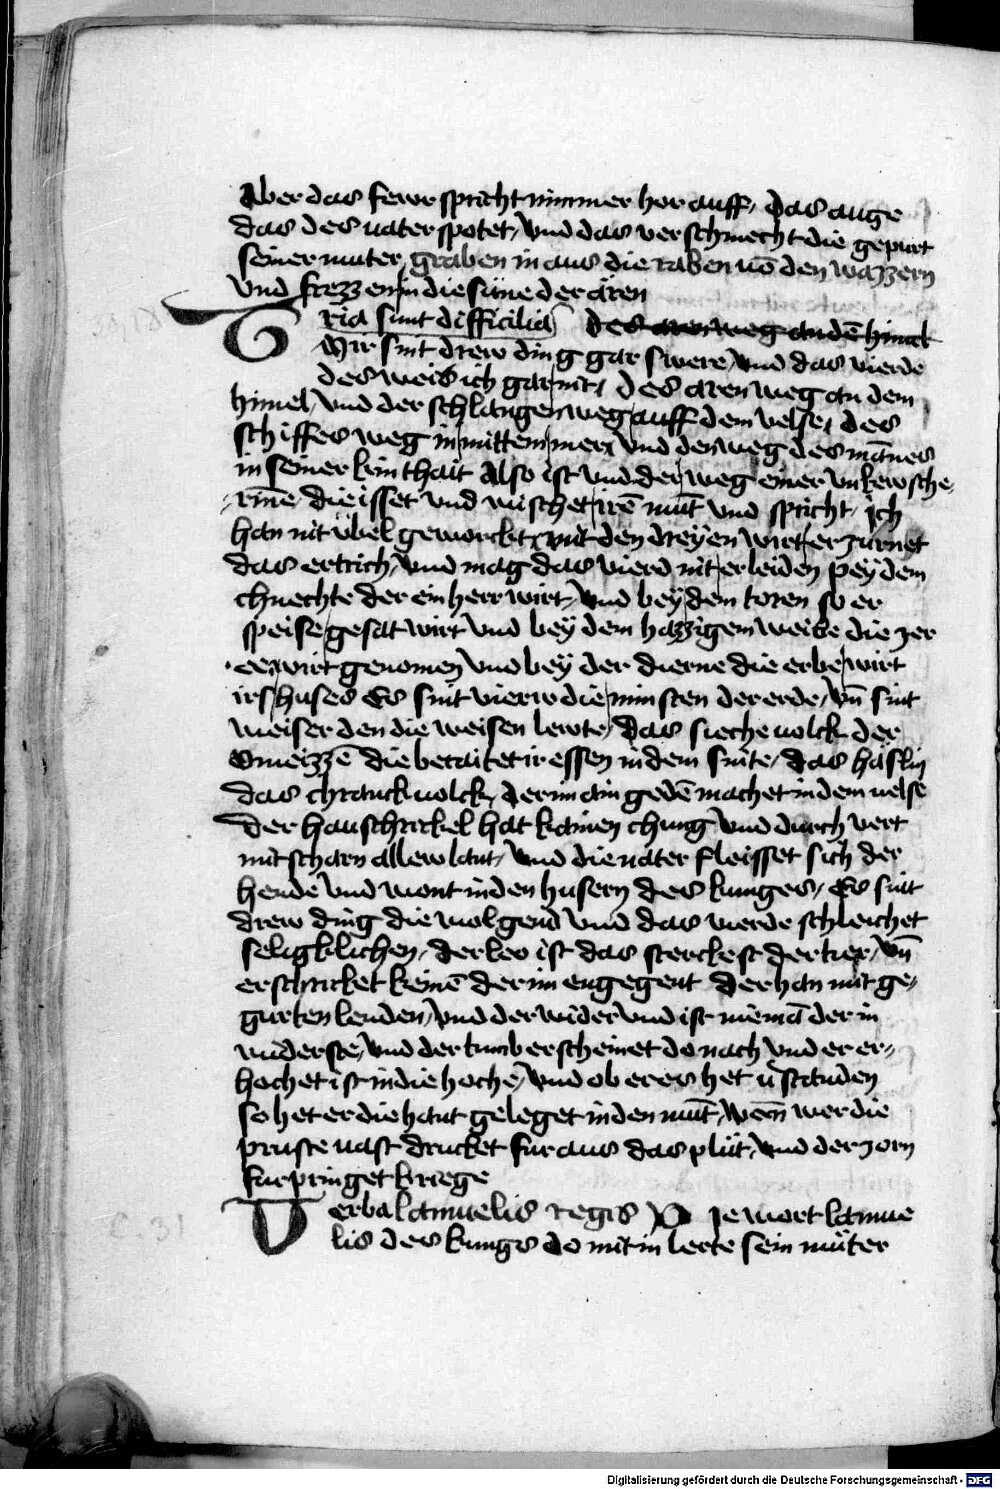 Aber das fewr spricht nimmer hor auff / Das auge
das des vater spotet / Vnd das verschmecht die gepurt
seiner muter / graben in aus die raben vō den wazzern
Vnd frezzen in die süne der aren
Tria sunt difficilia des aren weg an dē himel
Mir sint drew ding gar swere / vnd das vierde
des weis ich gar nit / Des aren weg an dem
himel / vnd der schlangen weg auff dem velse / des
schiffes weg in mittem mer / Vnd den weg des mānes
in seiner kinthait Also ist vnd der weg einer vnkewsche
rinē / die isset vnd wischet irē mūt vnd spricht / ich
han nit übel geworckt / mit den dreyen wirt erzürnet
das ertrich / vnd mag das vierd nit erleiden pey dem
chnechte der ein herr wirt / Vnd bey dem toren so er
speise gesat wirt Vnd bey dem hazzigem weibe die zer
ee wirt genomen Vnd bey der dierne die erbe wirt
irs huses Es sint vierw die minsten der erde / vn̄ sint
weiser den die weisen lewte / Das sieche volck der
Omeizzē die beraitet ir essen in dem snite / das häslin
das chranck volck / Der im ain gedē machet in dem velse
Der hauschrickel hat kainen chung Vnd durch vert
mit scharn allew lant / Vnd die nater fleisset sich der
hende Vnd wont in den husern des kunges / Es sint
drew ding die wol gend vnd das vierde schleichet
seligklichen / der leo ist das sterckest der tier / vn̄
erschricket keinē der im engegent Der han mit ge
gurten lenden / Vnd der wider Vnd ist niemā der in
widerste / Vnd der tumb erscheinet do nach vnd er er
hochet ist in die hoche / Vnd ob er es het v̈standen
so het er die hant geleget in den mūt / Wen̄ wer die
prüste vast drucket fur aus das plüt / Vnd der zorn
fur pringet kriege
Verba lamuelis regis Die wort lamue
lis des kungs do mit in lerte sein müter
C 31
Digitalisierung gefördert durch die Deutsche Forschungsgemeinschaft - DFG